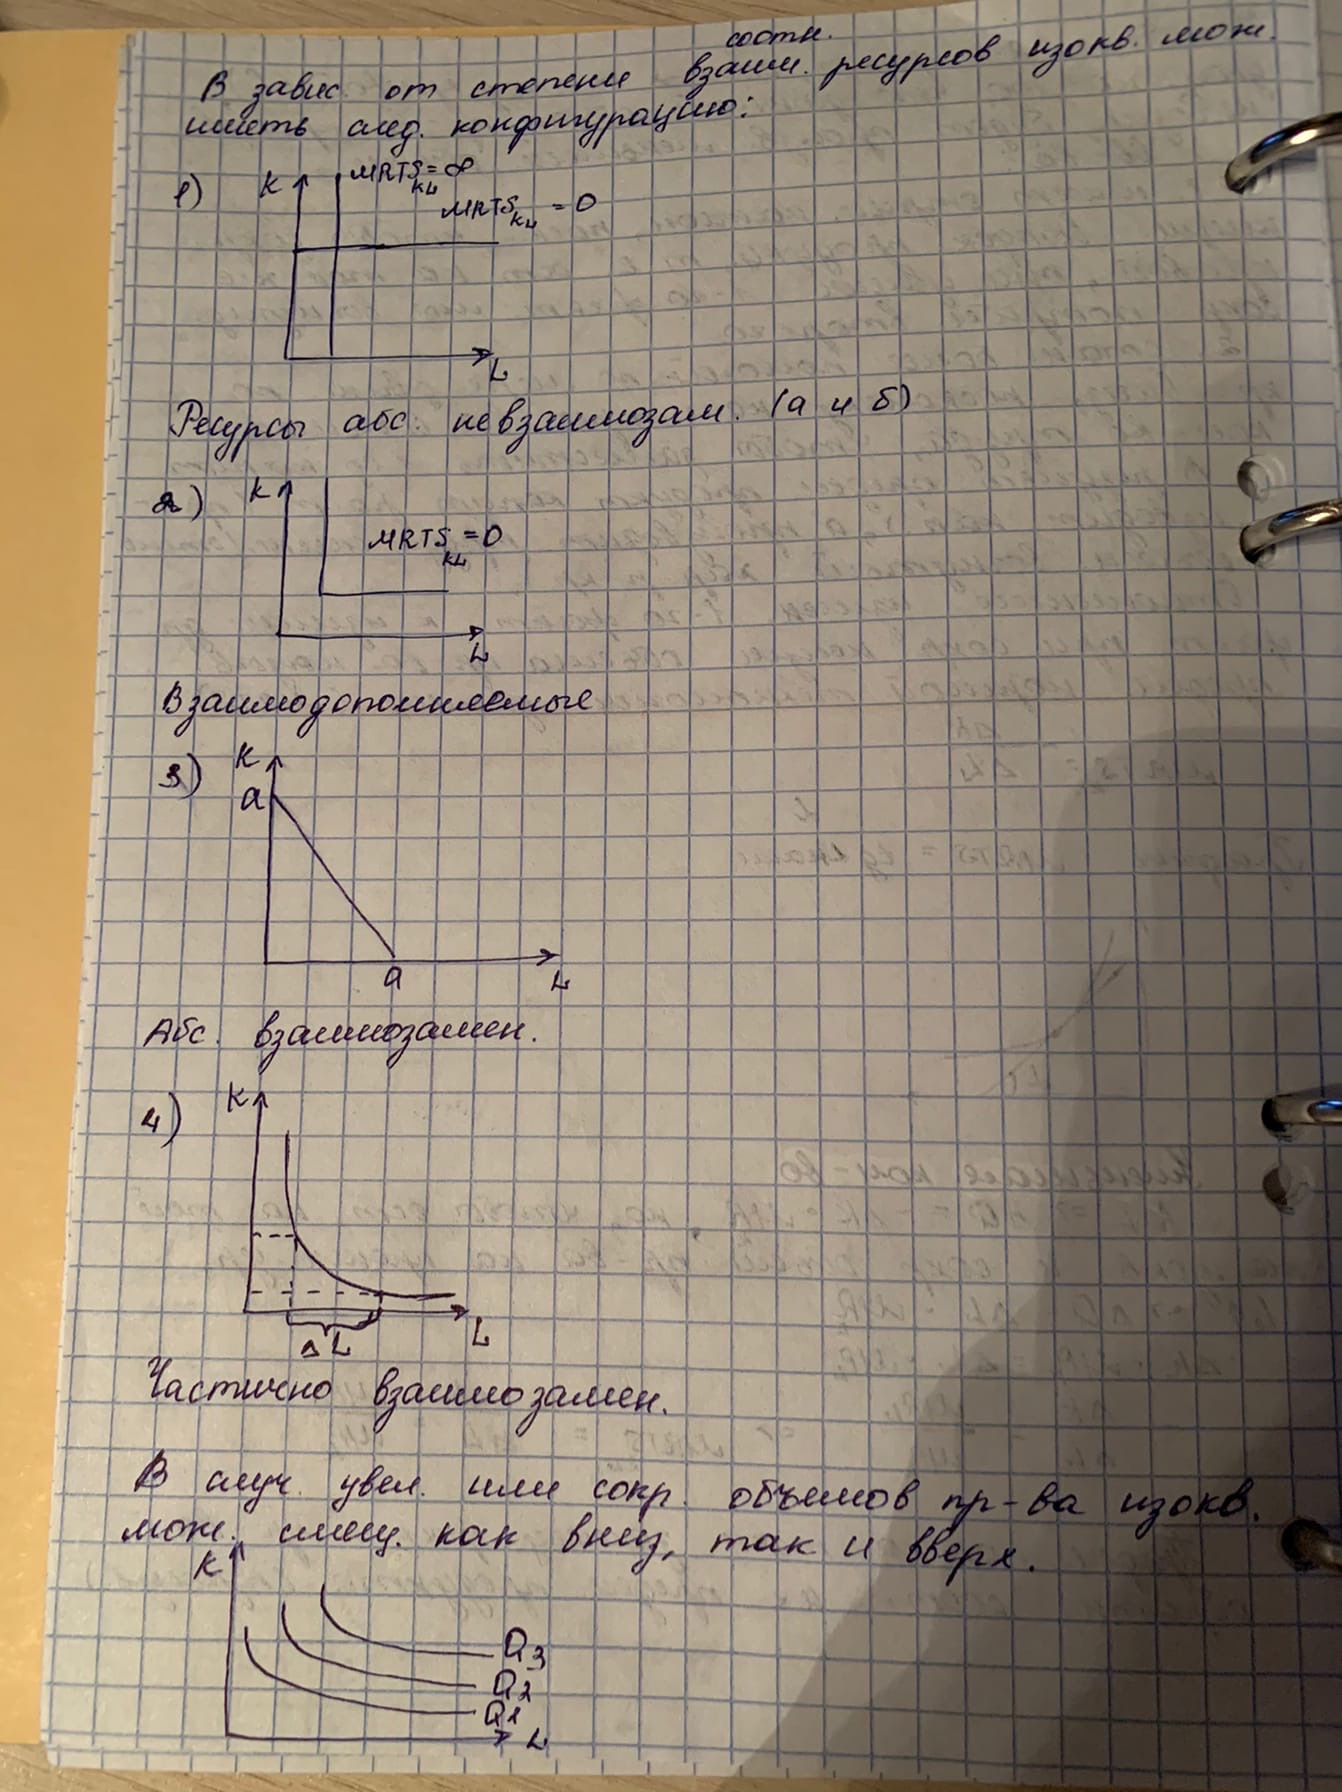 соотн.
В завис. от степени взаим. ресурсов изокв. мож.
иметь след. конфигурацию:
1) K MRTS KL = ∞
MRTS KL = 0
L
Ресурсы абс. невзаимозам. (а и б)
2) K
MRTS KL = 0
L
Взаимодополняемые
3) K
a
a L
Абс. взаимозамен.
4) K
L
Δ L
Частично взаимозамен.
В случ. увел. или сокр. объемов пр-ва изокв.
мож. смещ. как вниз, так и вверх.
K
Q3
Q2
Q1
L